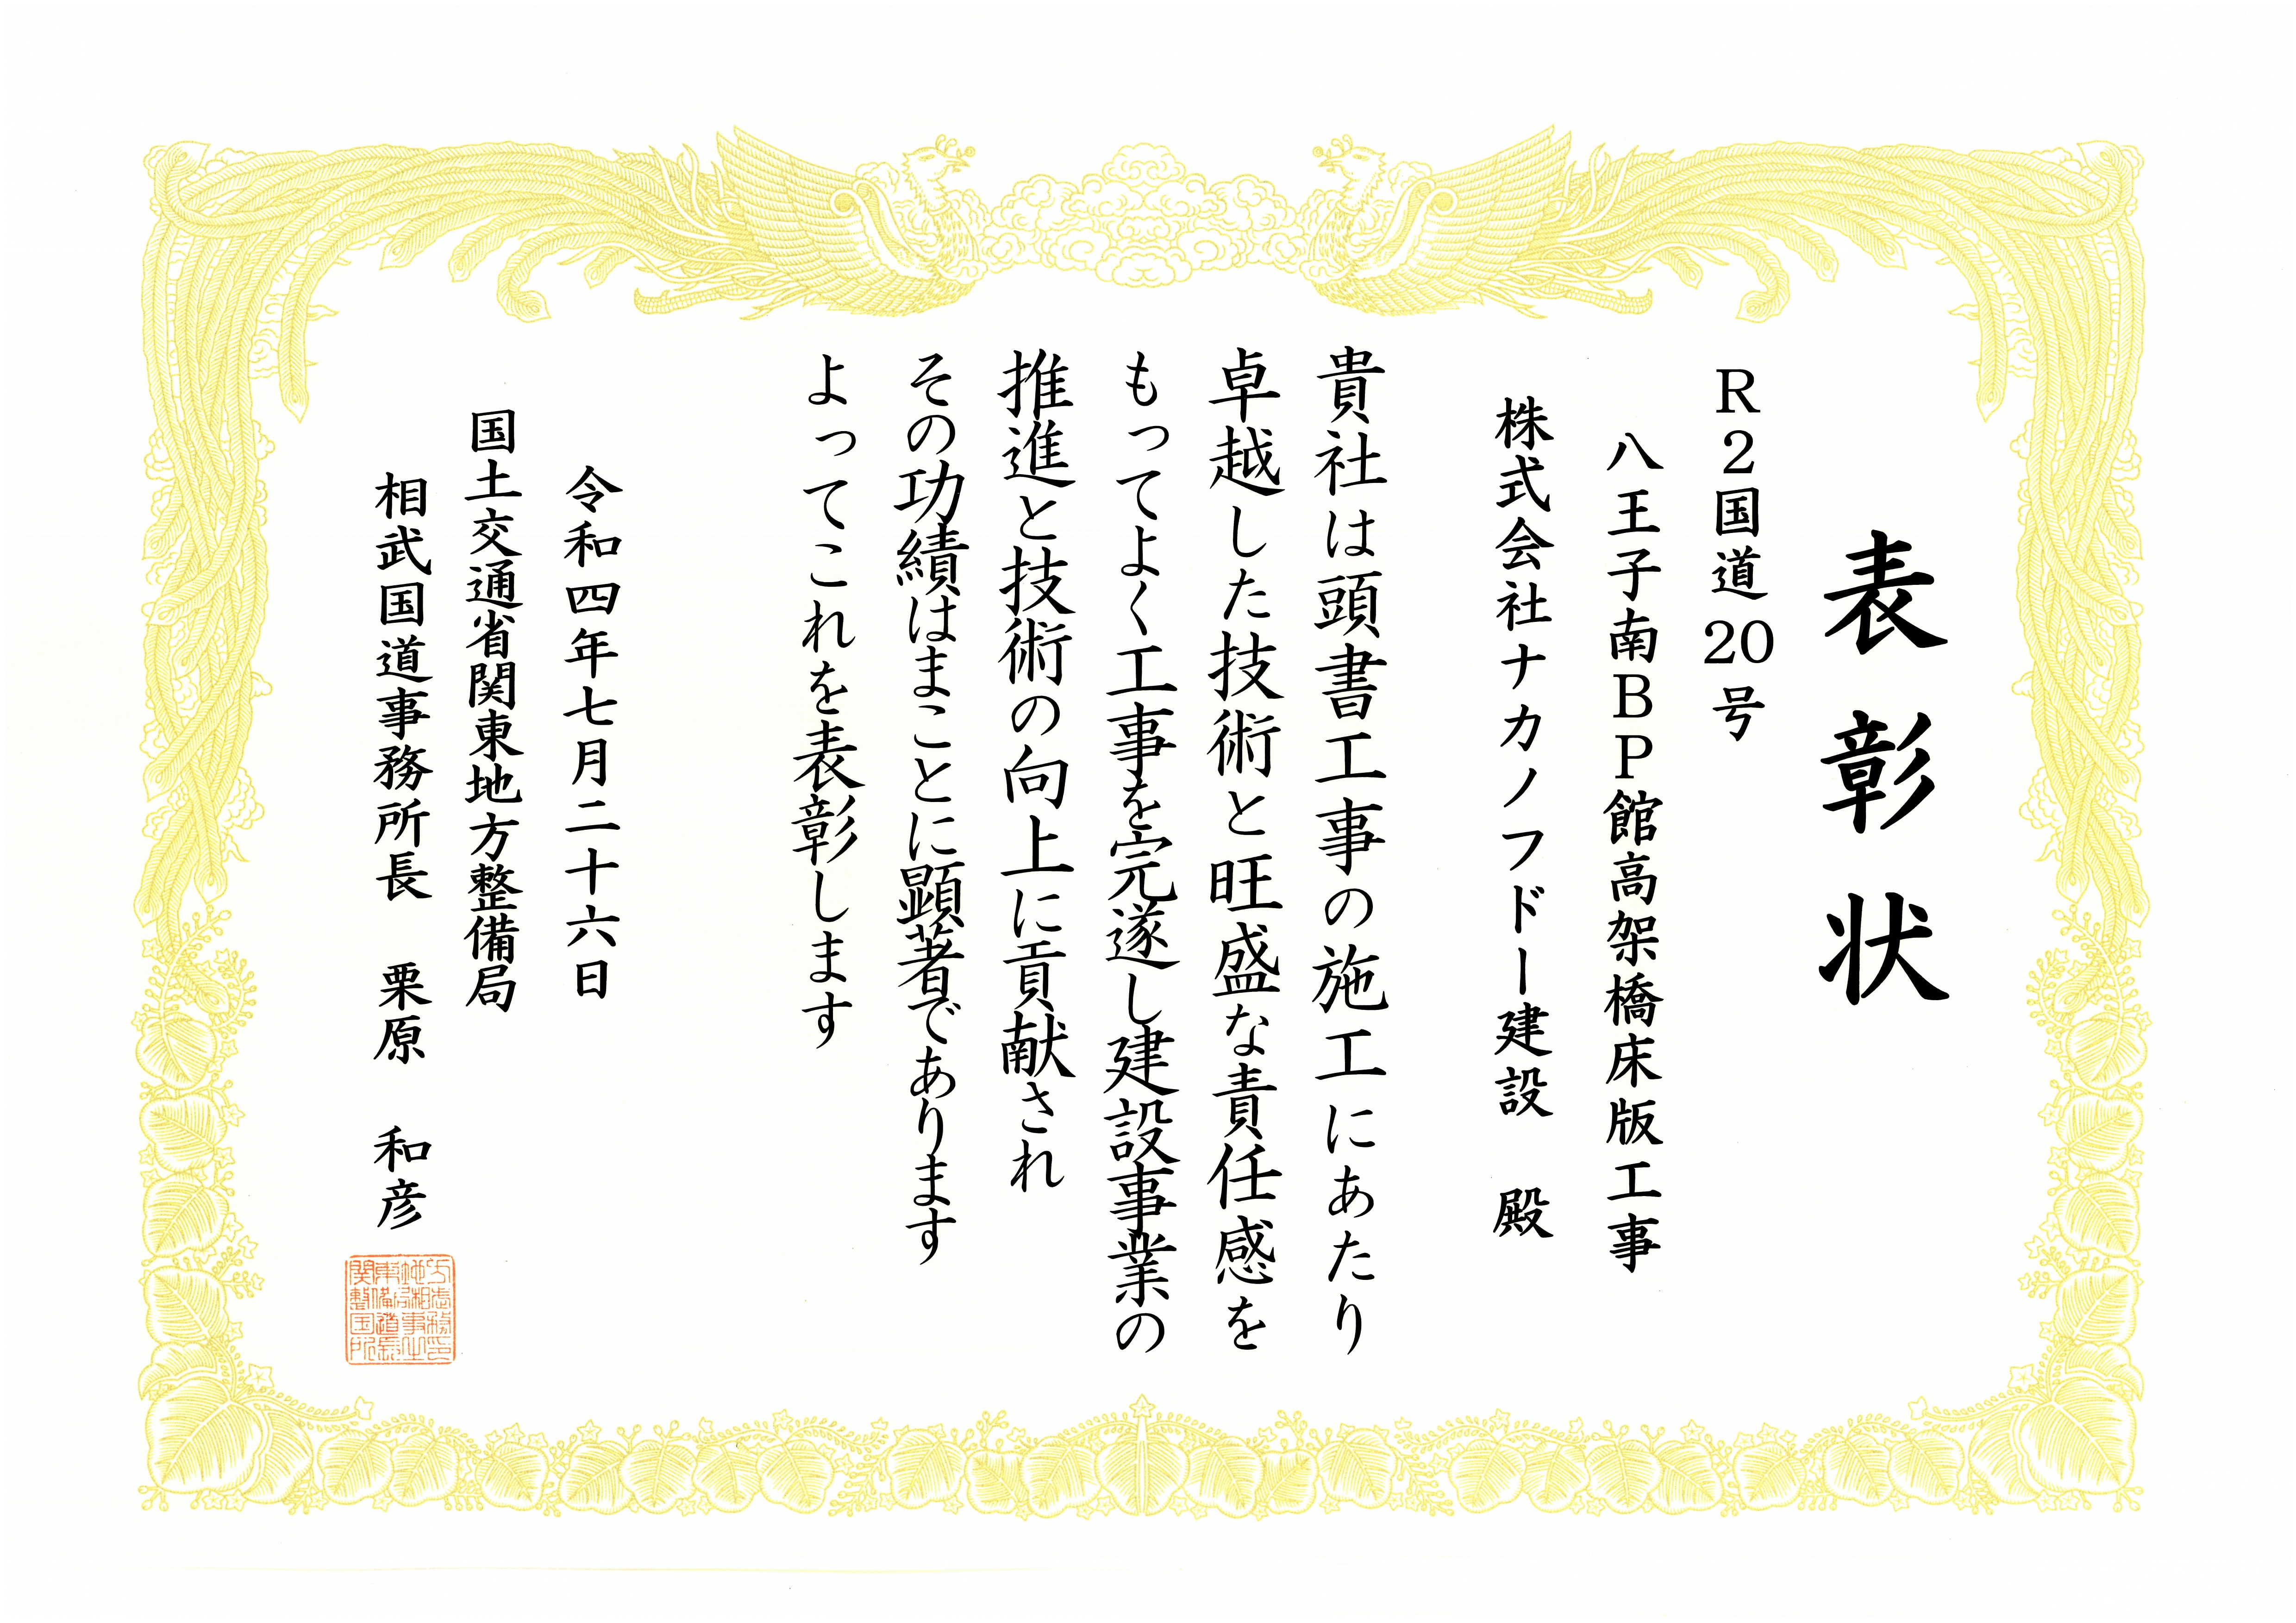 表彰状
R2国道20号
八王子南BP館高架橋床版工事
株式会社ナカノフドー建設 殿
貴社は頭書工事の施工にあたり
卓越した技術と旺盛な責任感を
もってよく工事を完遂し建設事業の
推進と技術の向上に貢献され
その功績はまことに顕著であります
よってこれを表彰します
令和四年七月二十六日
国土交通省関東地方整備局
相武国道事務所長 栗原 和彦